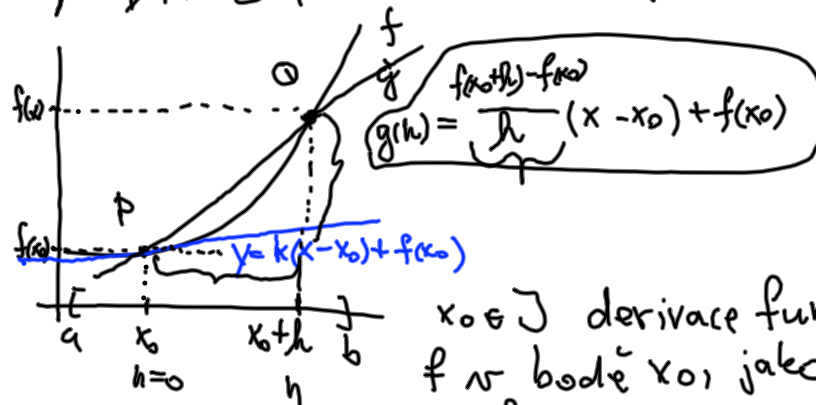 f
Q
g
f(x)
g(h) = f(x₀+h)-f(x₀) / h (x - x₀) + f(x₀)
P
f(x₀)
y = k(x-x₀) + f(x₀)
a x₀ x₀+h b
h=0 h
x₀ ∈ J derivace fun
f v bodě x₀, jako